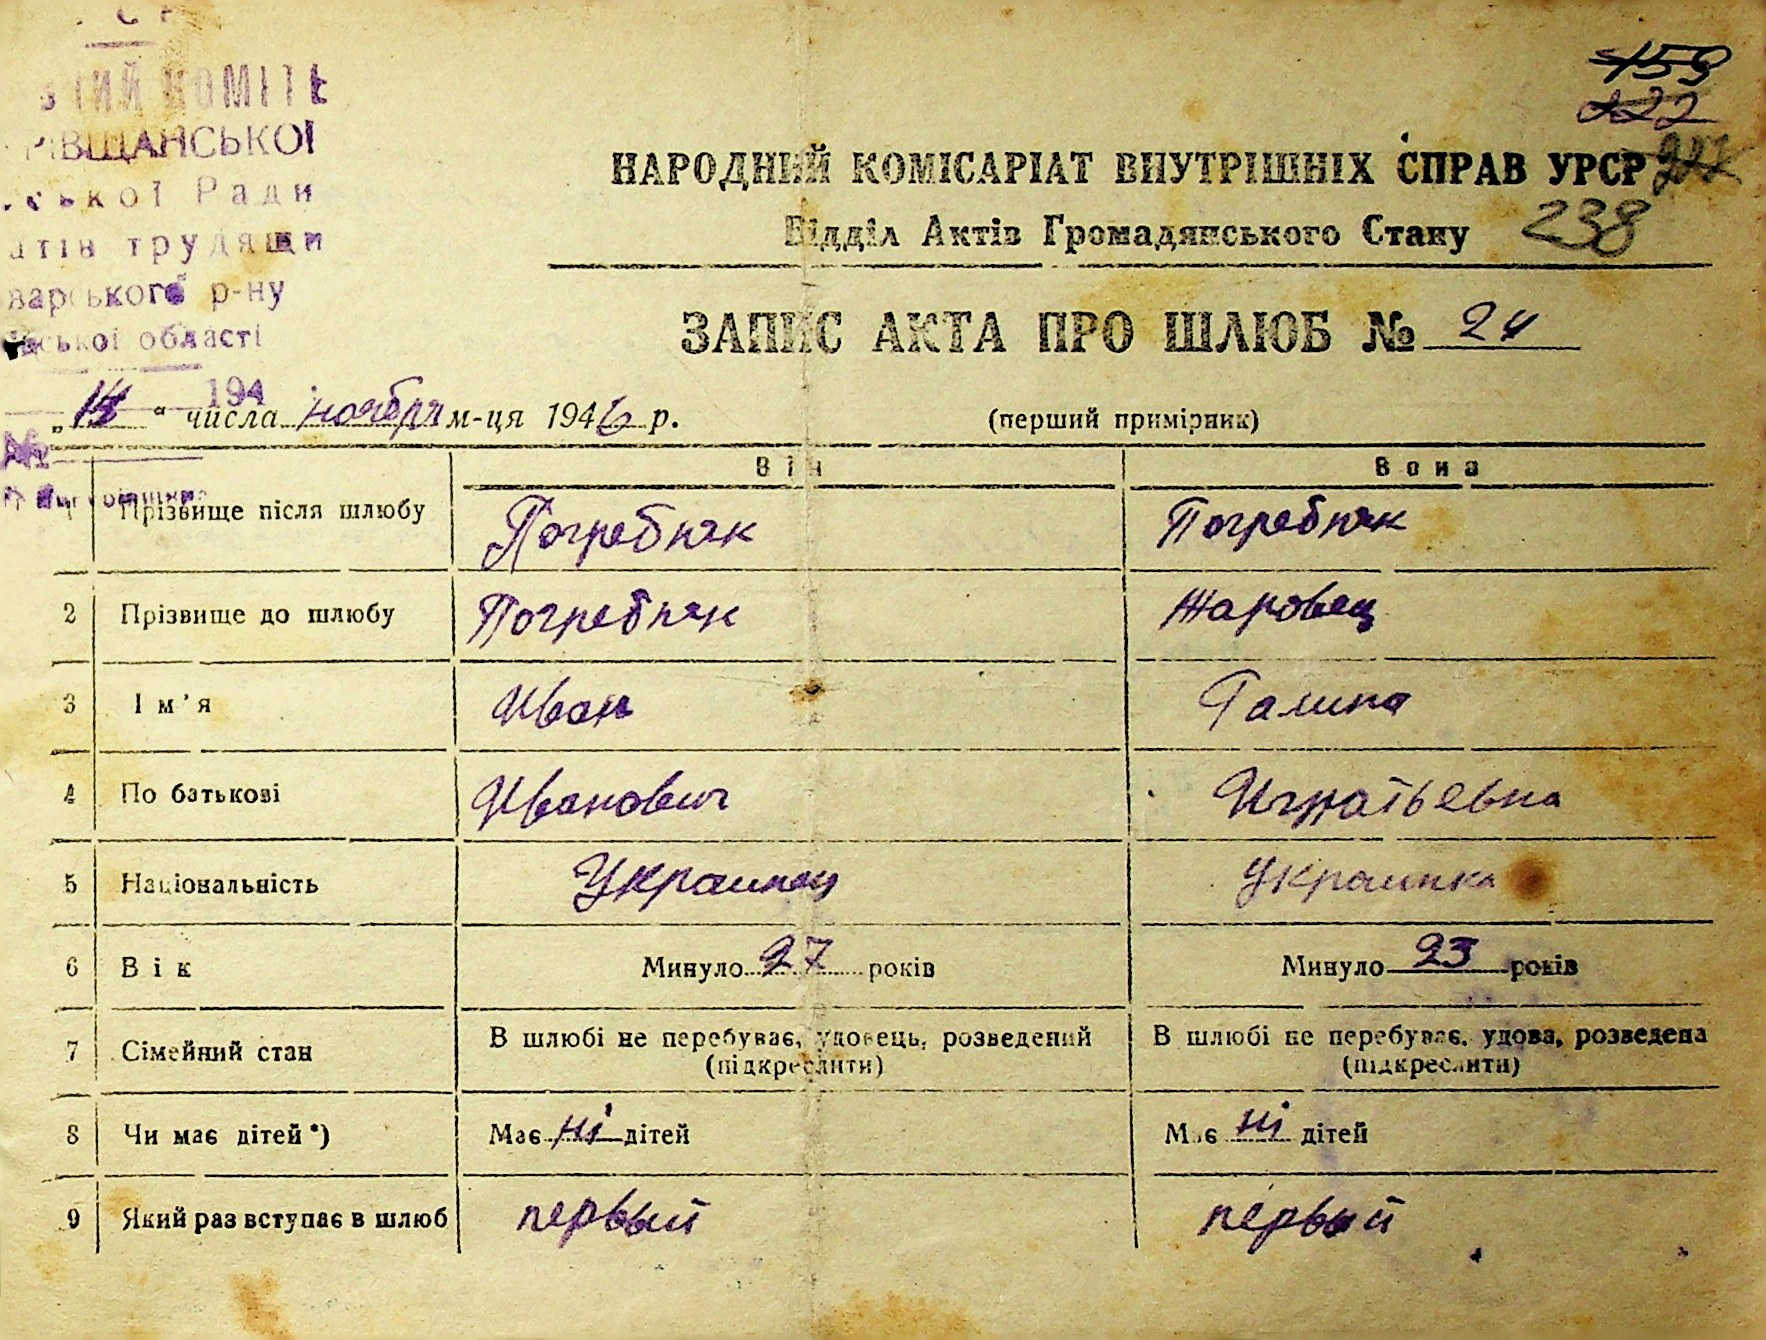 159
222
227
238
РІВЩАНСЬКОЇ
Ради
трудящи
р-ну
області
194
НАРОДНИЙ КОМІСАРІАТ ВНУТРІШНІХ СПРАВ УРСР
Відділ Актів Громадянського Стану
ЗАПИС АКТА ПРО ШЛЮБ № 24
„14“ числа ноября м-ця 1946 р. (перший примірник)
Він Вона
1 Прізвище після шлюбу Погребняк Погребняк
2 Прізвище до шлюбу Погребняк Жаровец
3 Ім'я Иван Галина
4 По батькові Иванович Игнатьевна
5 Національність Украинец Украинка
6 Вік Минуло 27 років Минуло 23 років
7 Сімейний стан В шлюбі не перебуває, удовець, розведений (підкреслити) В шлюбі не перебуває, удова, розведена (підкреслити)
8 Чи має дітей*) Має ні дітей Має ні дітей
9 Який раз вступає в шлюб первый первый